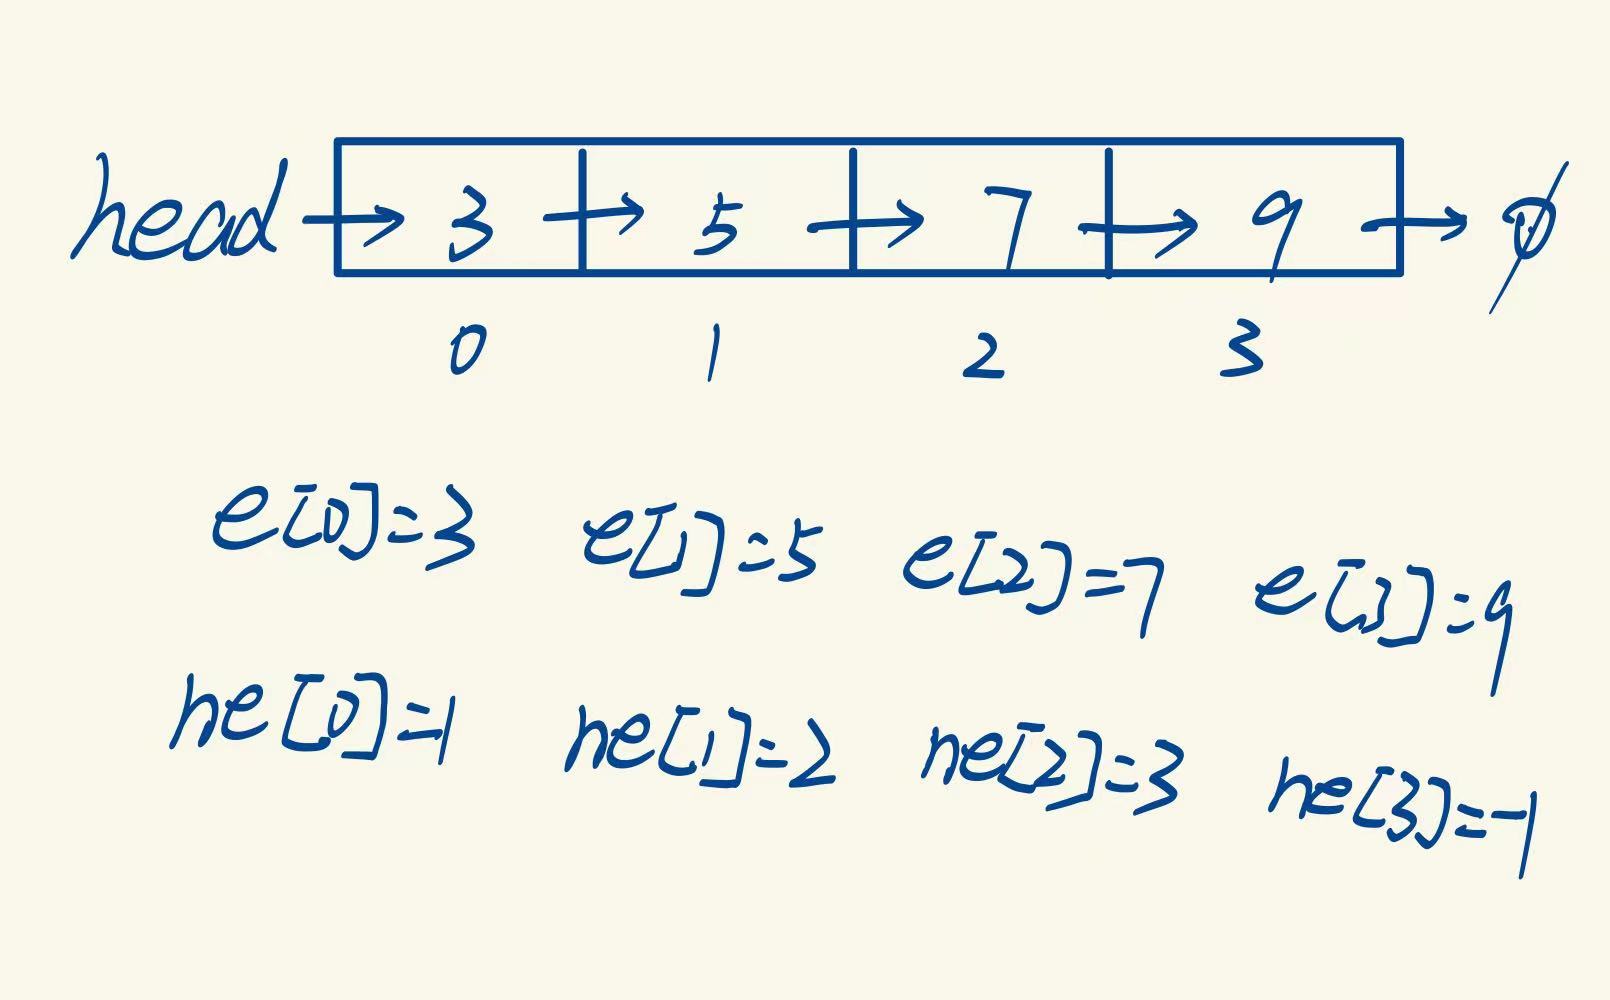 head → 3 → 5 → 7 → 9 → ∅
0 1 2 3
e[0]=3 e[1]=5 e[2]=7 e[3]=9
ne[0]=1 ne[1]=2 ne[2]=3 ne[3]=-1